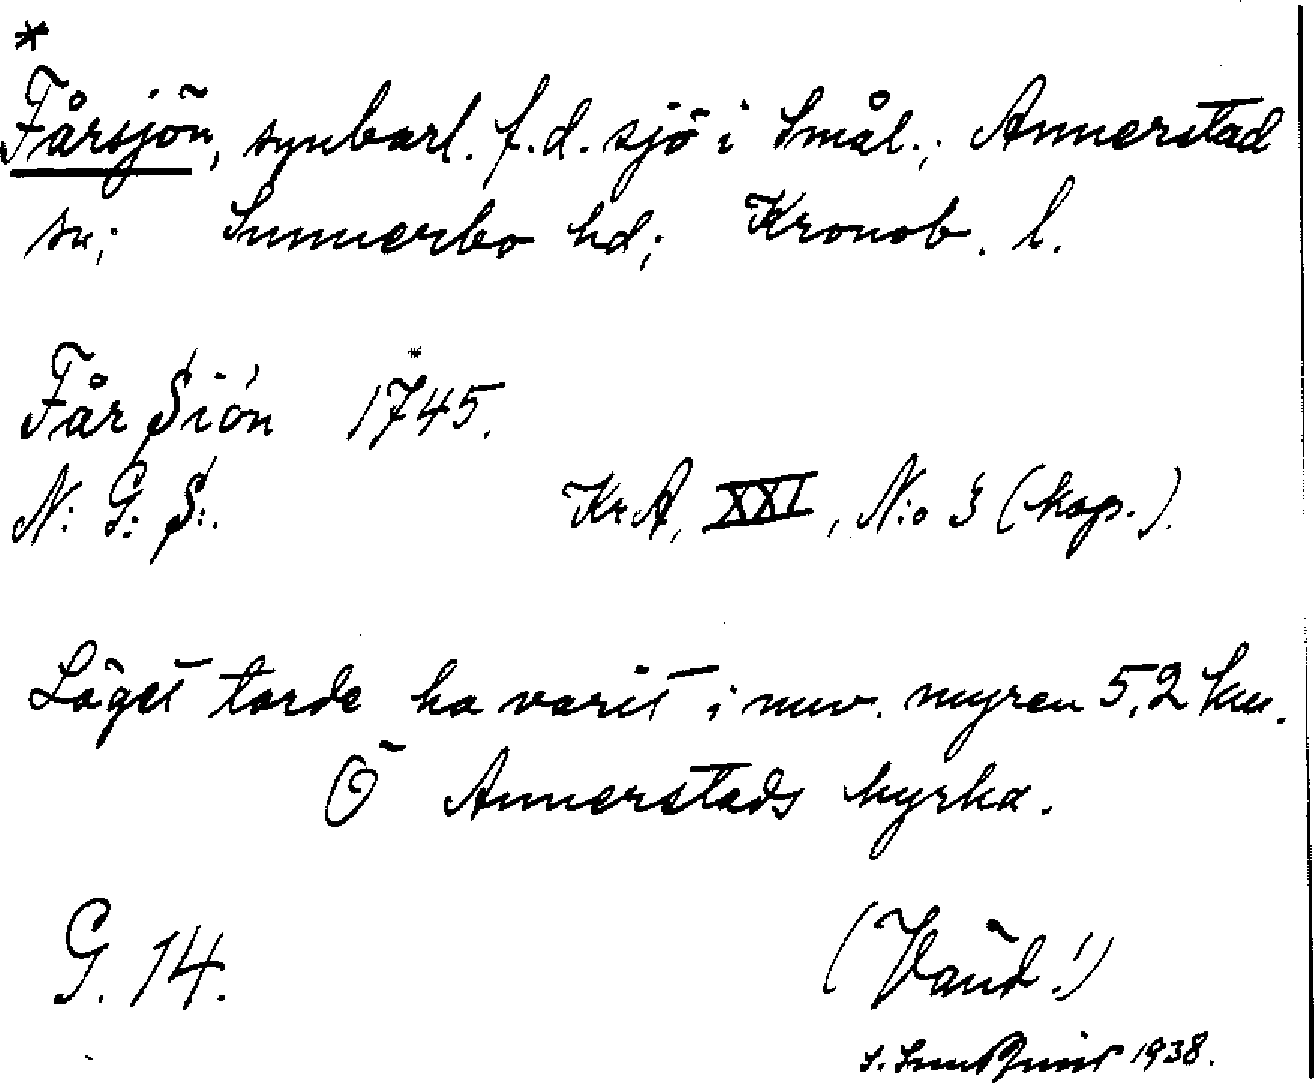 *
Fårsjön, synbarl. f.d. sjö i Smål.; Annerstad
sn; Sunnerbo hd; Kronob. l.
Får Siön 1745.
N: G: S:.
KrA, XXI, N:o 3 (kop.).
Läget torde ha varit i nuv. myren 5,2 km.
Ö Annerstads kyrka.
G. 14.
(Vänd!)
1938.